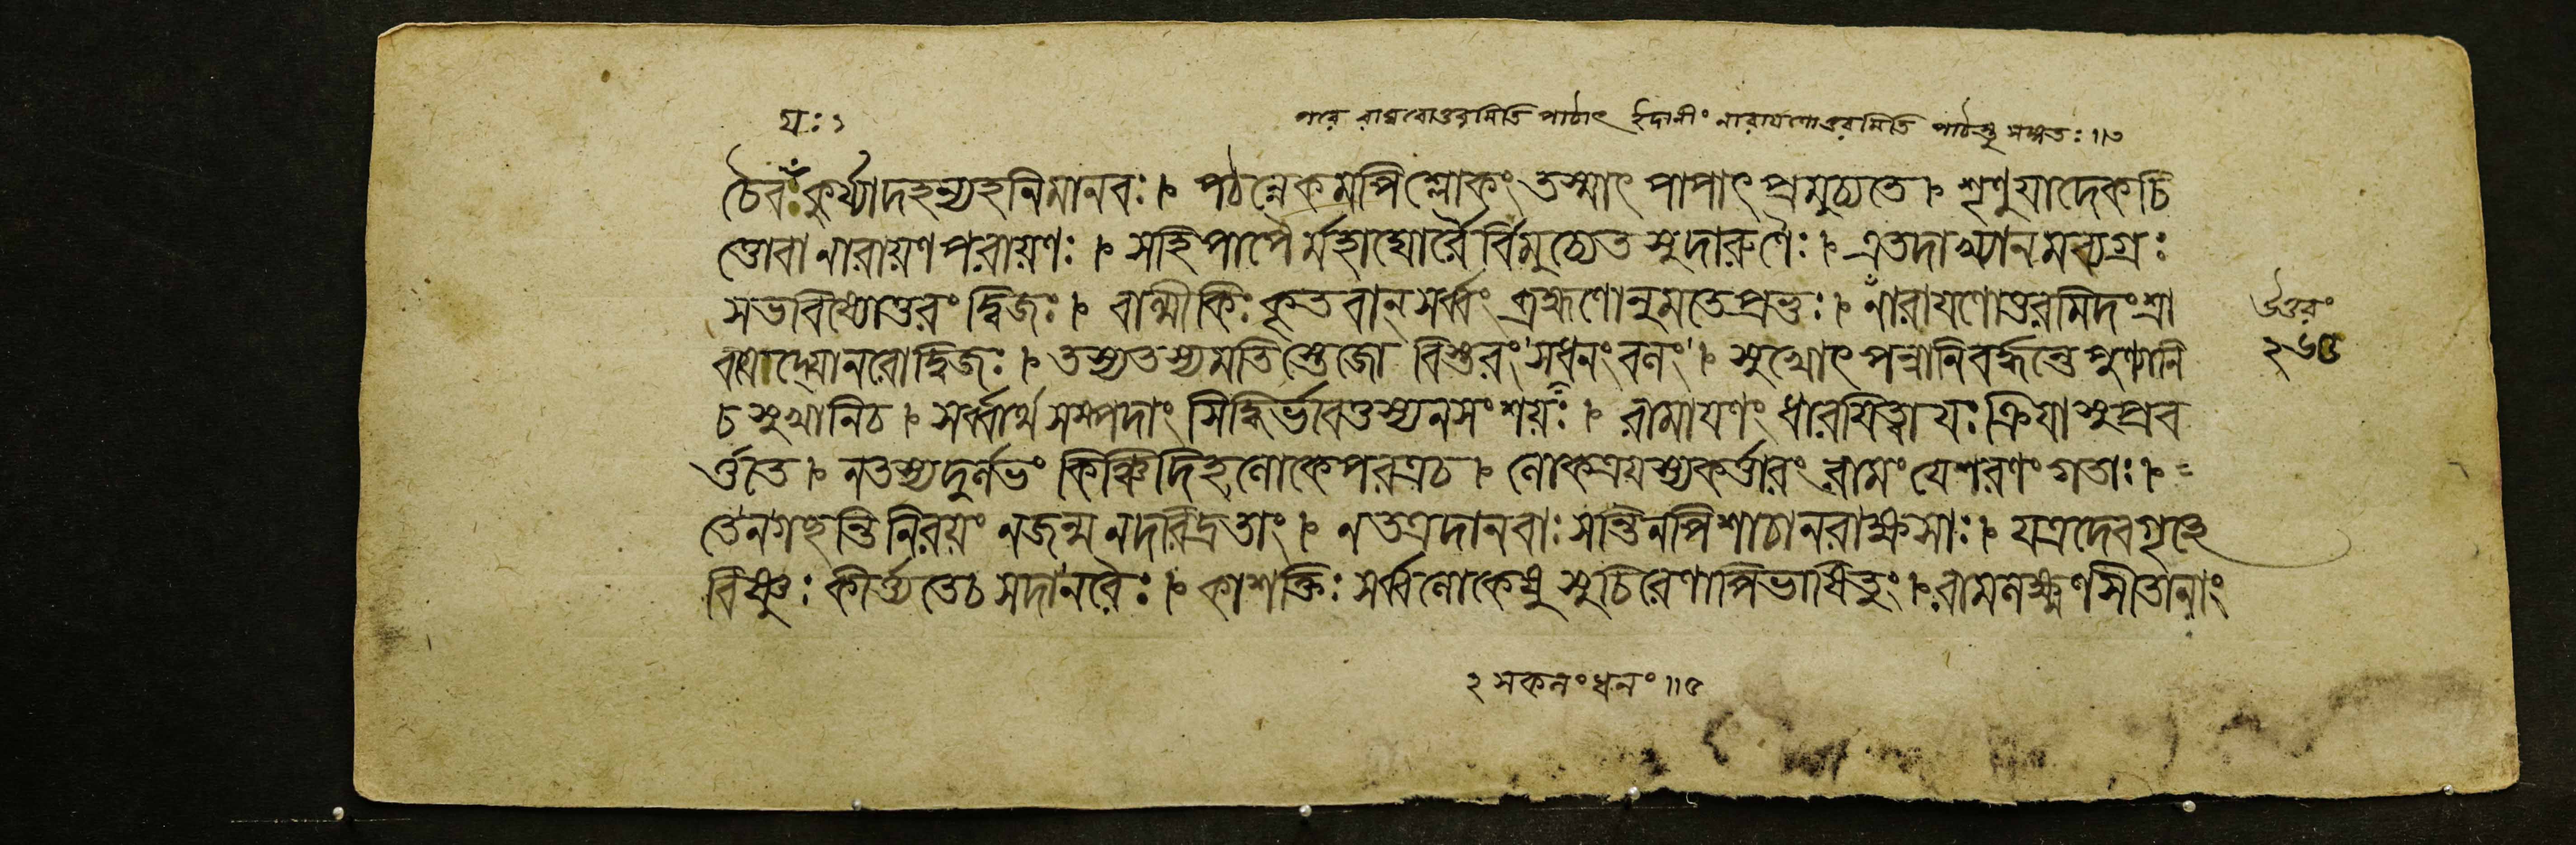 যঃ ১
পরে রাঘবোত্তরমিতি পাঠাৎ ইদানীং নারায়ণোত্তরমিতি পাঠস্তু সম্মতঃ ॥৩
চৈবঁ কুর্য্যাদহন্যহনি মানবঃ । পঠন্নেকমপি শ্লোকং তস্মাৎ পাপাৎ প্রমুচ্যতে । শৃণুয়াদেকচি
ত্তোবা নারায়ণপরায়ণঃ । সহি পাপৈর্মহাঘোরৈর্বিমুচ্যেত সুদারুণৈঃ । এতদাখ্যানমব্যগ্রঃ
সভবিষ্যোত্তরং দ্বিজঃ । বাল্মীকিঃ কৃতবান্ সর্ব্বং ব্রহ্মণোনুমতে প্রভুঃ । নারায়ণোত্তরমিদং শ্রা
বয়েদ্যোনরোদ্বিজঃ । তস্য তস্য মতিস্তেজো বিস্তরং সধনং বনং । সুখোৎপন্নানি বর্দ্ধন্তে পুণ্যানি
চ সুখানিচ । সর্ব্বার্থসম্পদাং সিদ্ধির্ভবেত্তস্য নসংশয়ঃ । রামায়ণং ধারয়িত্বা যঃ ক্রিয়াসু প্রব
র্ত্ততে । নতস্য দুর্লভং কিঞ্চিদিহলোকে পরত্রচ । লোকত্রয়স্য কর্ত্তারং রামং যে শরণং গতাঃ । =
তেনগচ্ছন্তি নিরয়ং নজন্ম নদরিদ্রতাং । নতত্রদানবাঃ সন্তি নপিশাচা নরাক্ষসাঃ । যত্রদেবগৃহে
বিষ্ণুঃ কীর্ত্ত্যতেচ সদানরৈঃ । কাশক্তিঃ সর্ব্বলোকেষু সুচিরেণাপি ভাষিতুং । রামলক্ষ্মণসীতানাং
উত্তরং
২৬৫
২ সকলং ধনং ॥৫